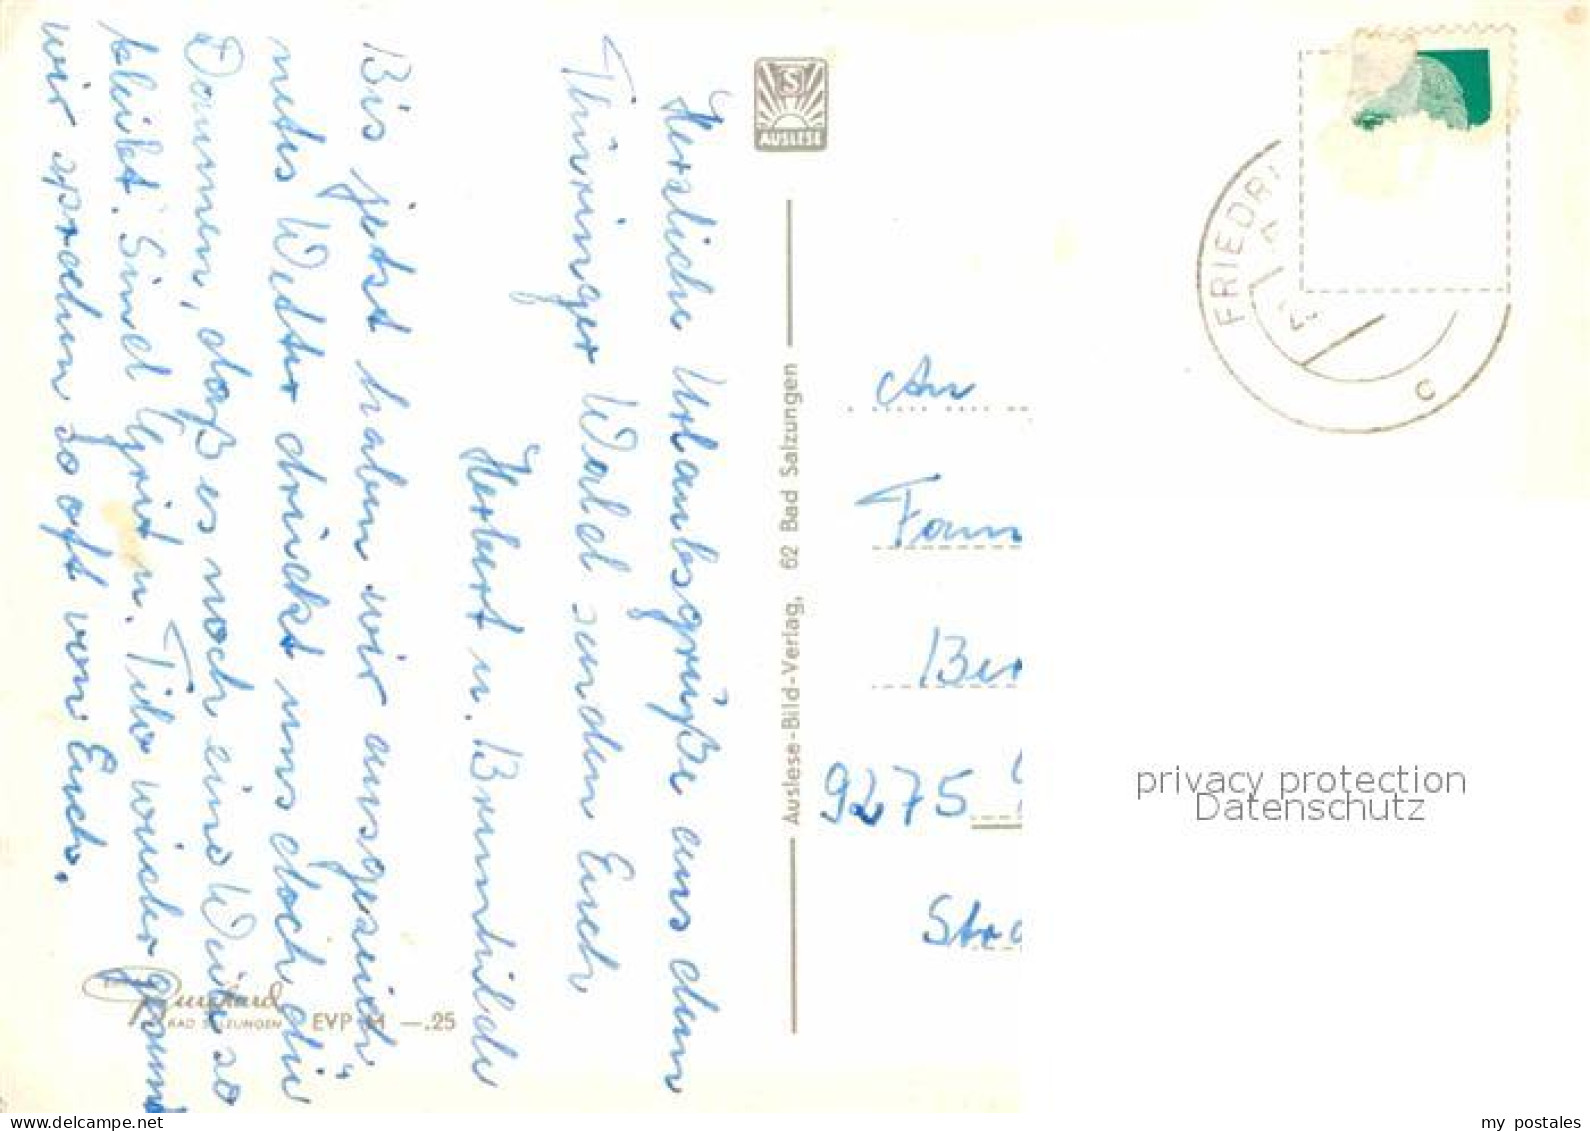 Herzliche Urlaubsgrüße aus dem
Thüringer Wald senden Euch
Herbert u. Brunhilde
Bis jetzt haben wir ausgezeich"
netes Wetter drückt uns doch die
Daumen, daß es noch eine Weile so
bleibt. Sind Grit u. Tilo wieder gesund
wir sprechen so oft von Euch.
S
AUSLESE
Auslese-Bild-Verlag, 62 Bad Salzungen
BAD SALZUNGEN
EVP M —.25
FRIEDRI
c
An
Fam
Ber
9275
Stra
privacy protection
Datenschutz
my postales